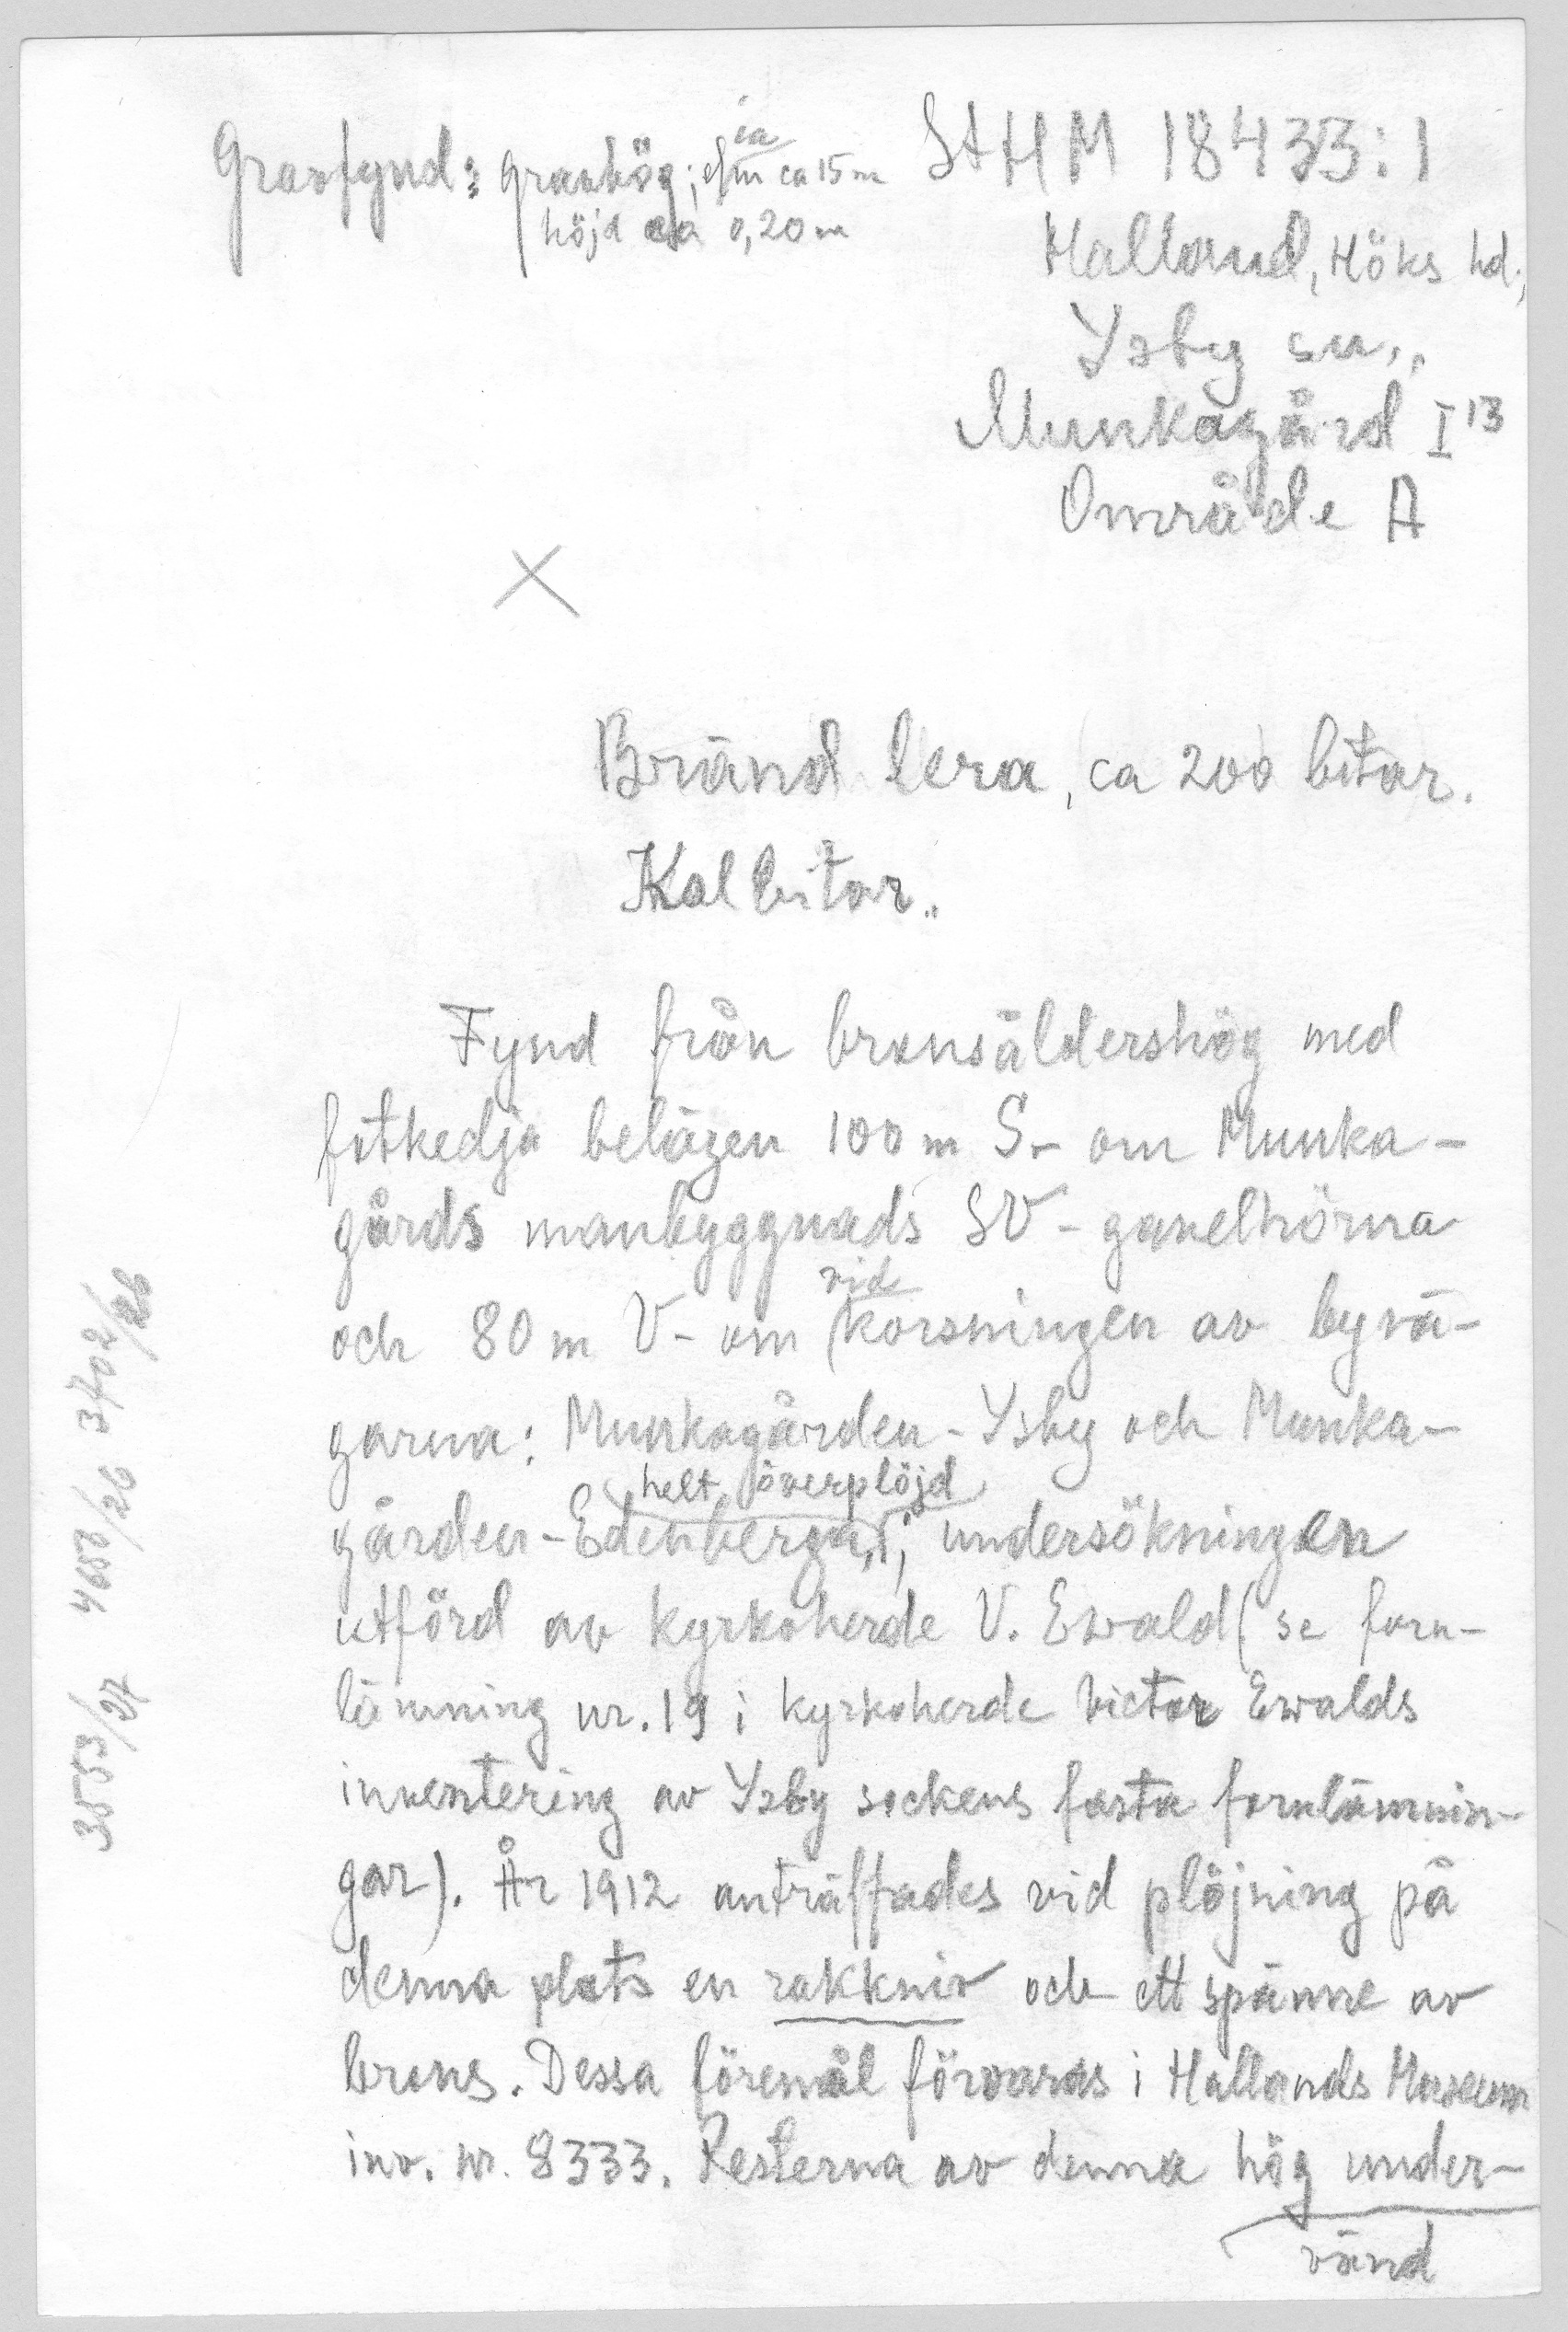 Gravfynd: gravhög; diam ca 15 m
höjd ca 0,20 m
StHM 18433:1
Halland, Höks hd.,
Ysby sn.,
Munkagård I 13
Område A
X
Bränd lera, ca 200 bitar.
Kolbitar.
Fynd från bronsåldershög med
fotkedja belägen 100 m S- om Munka-
gårds manbyggnads SV- gavelhörna
och 80 m V- om vid korsningen av byvä-
garna: Munkagården-Ysby och Munka-
helt överplöjd
gården-Edenberga, ; undersökningen
utförd av kyrkoherde V. Ewald (se forn-
lämning nr. 19 i kyrkoherde Victor Ewalds
inventering av Ysby sockens fasta fornlämnin-
gar). År 1912 anträffades vid plöjning på
denna plats en rakkniv och ett spänne av
brons. Dessa föremål förvaras i Hallands Museum
inv. nr. 8333. Resterna av denna hög under-
vänd
3553/27 4650/26 3702/26